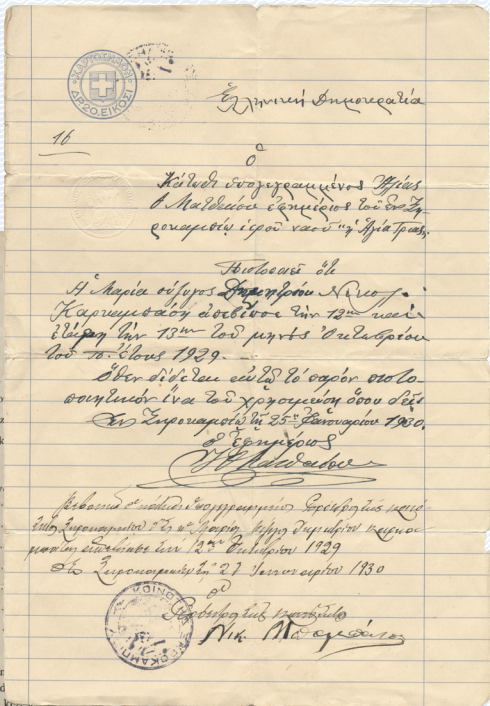 ΧΑΡΤΟΣΗΜΟΝ
ΔΡ 20 ΕΙΚΟΣΙ
Ἑλληνική Δημοκρατία
16
Ὁ
Κάτωθι ὑπογεγραμμένος Ἠλίας
Ματθαίου ἐφημέριος τοῦ ἐν Ξη-
ροκαμπίῳ ἱεροῦ ναοῦ "ἡ Ἁγία Τριάς"
Πιστοποιεῖ ὅτι
Ἡ Μαρία σύζυγος Δημητρίου Νικολ.
Καρκαμπάση ἀπεβίωσε τὴν 12ην καὶ
ἐτάφη τὴν 13ην τοῦ μηνὸς Ὀκτωβρίου
τοῦ π. ἔτους 1929.
Ὅθεν δίδεται αὐτῷ τὸ παρὸν πιστο-
ποιητικὸν ἵνα τοῦ χρησιμεύσῃ ὅπου δεῖ
Ἐν Ξηροκαμπίῳ τῇ 25ῃ Ἰανουαρίου 1930.
ὁ ἐφημέριος
Ματθαίου
ὁ κάτωθι ὑπογεγραμμένος Πρόεδρος τῆς κοινό-
τητος Ξηροκαμπίου ὅτι ἡ Μαρία Δημητρίου Καρκα-
μπάση ἀπεβίωσε τὴν 12ην Ὀκτωβρίου 1929
Ἐν Ξηροκαμπίῳ τῇ 27 Ἰανουαρίου 1930
ὁ
Πρόεδρος τῆς κοινότητος
Νικ.
ΚΟΙΝΟΤΗΣ ΞΗΡΟΚΑΜΠΙΟΥ